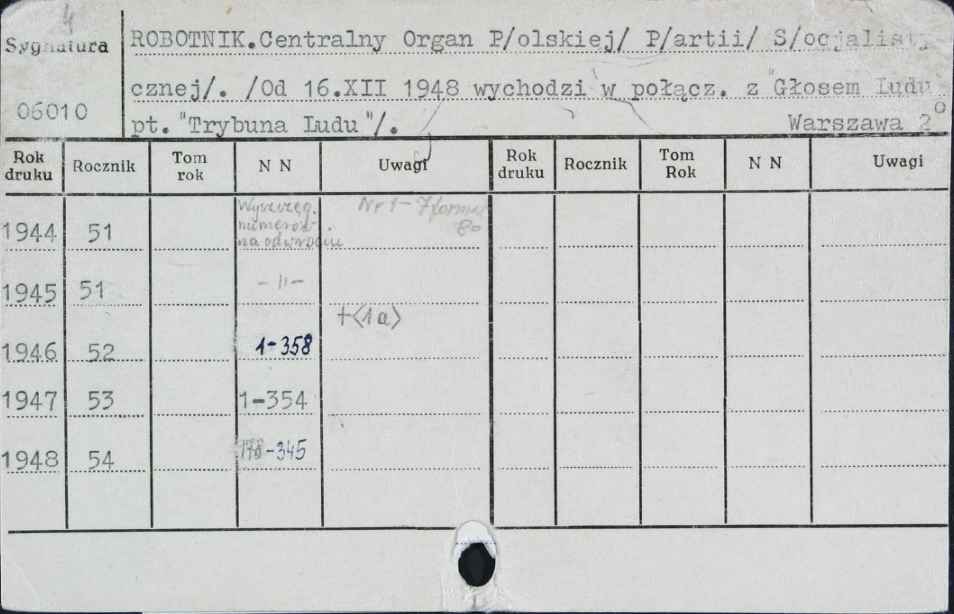 4
Sygnatura
06010
ROBOTNIK.Centralny Organ P/olskiej/ P/artii/ S/ocjalisty
cznej/. /Od 16.XII 1948 wychodzi w połącz. z "Głosem Ludu"
pt. "Trybuna Ludu"/. Warszawa 2°
Rok druku Rocznik Tom rok N N Uwagi Rok druku Rocznik Tom Rok N N Uwagi
1944 51 Wyszczeg. numerów na odwrocie Nr 1- 7 format 8o
1945 51 -"-
+<1a>
1946 52 1-358
1947 53 1-354
1948 54 -345